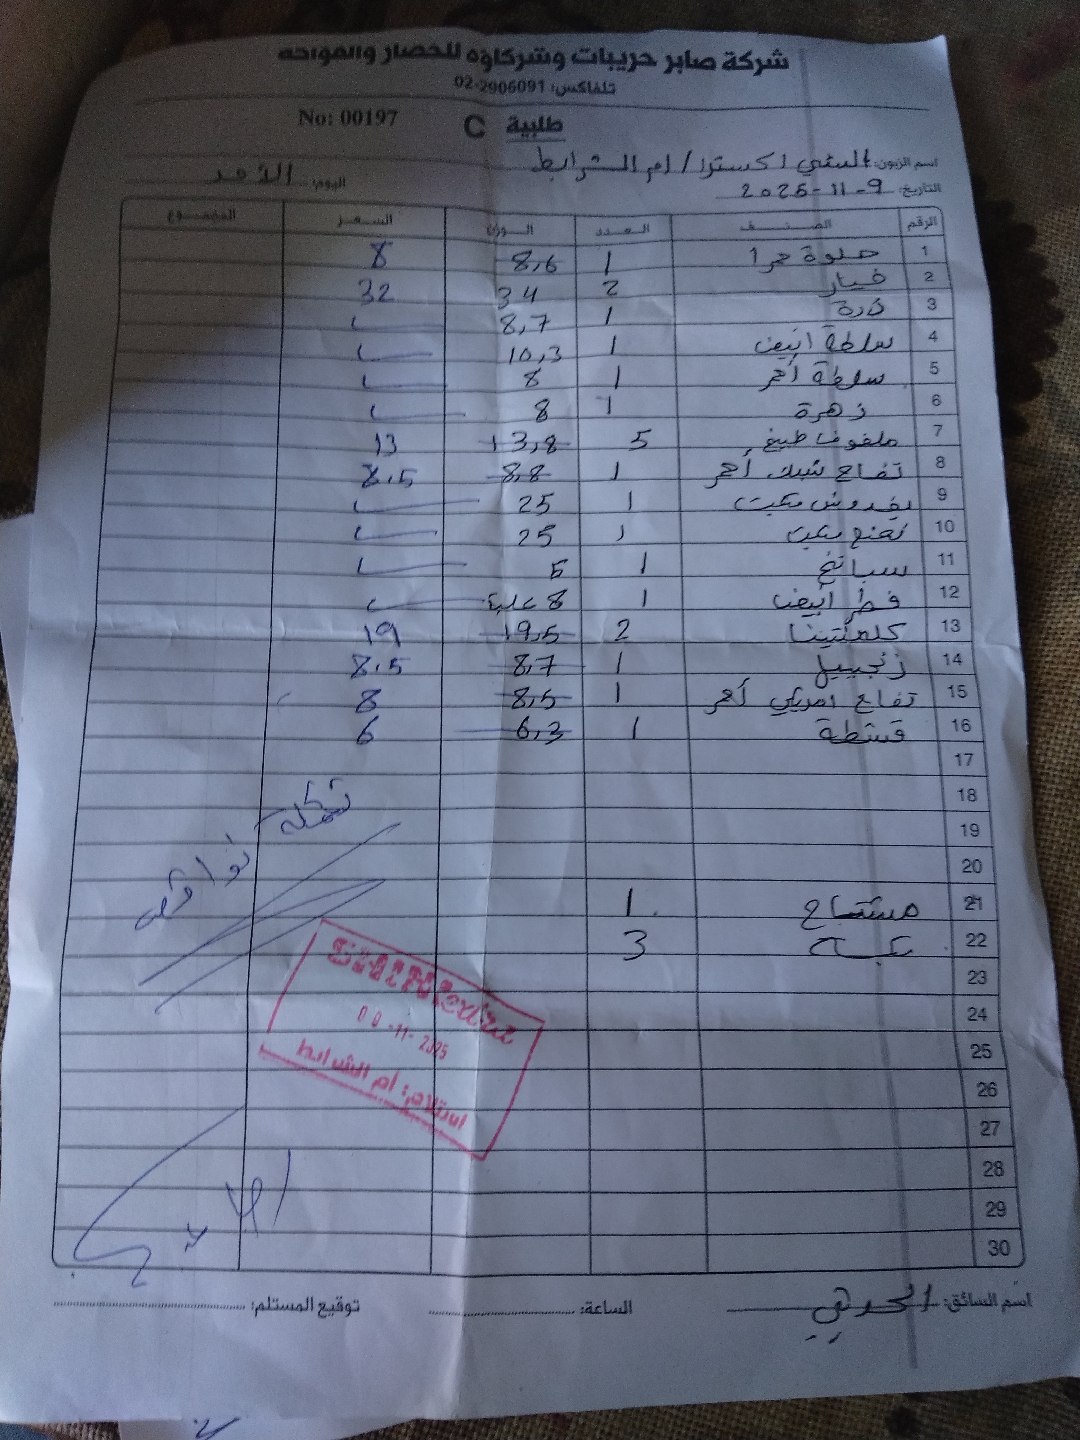 شركة صابر حريبات وشركاؤه للخضار والفواكه
تلفاكس: 02-2906091
No: 00197
طلبية C
اسم الزبون: السني اكسترا / ام الشرايط
التاريخ: 9-11-2025 اليوم: الأحد
الرقم الصنف العدد الوزن السعر المجموع
1 حلوة حمرا 1 8,6 8
2 خيار 2 34 32
3 ذرة 1 8,7
4 سلطة ابيض 1 10,3
5 سلطة أحمر 1 8
6 زهرة 1 8
7 ملفوف طبيخ 5 13,8 13
8 تفاح شبك أحمر 1 8,8 8.5
9 بقدونس مكبت 1 25
10 نعنع مكبت 1 25
11 سبانخ 1 5
12 فطر أبيض 1 8 علبة
13 كلمنتينا 2 19,5 19
14 زنجبيل 1 8,7 8.5
15 تفاح امريكي أحمر 1 8,5 8
16 قشطة 1 6,3 6
17
18
19
20
21 مشتاح 1
22 3
23
24
25
26
27
28
29
30
-11- 2025
استلام: ام الشرايط
اسم السائق: الساعة: توقيع المستلم: